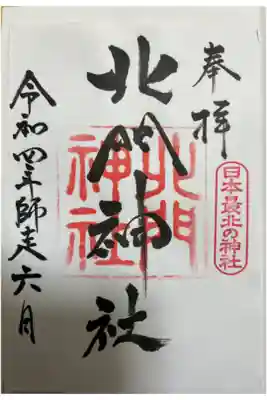 奉拝
日本最北の神社
北門神社
北門神社
令和四年師走六月